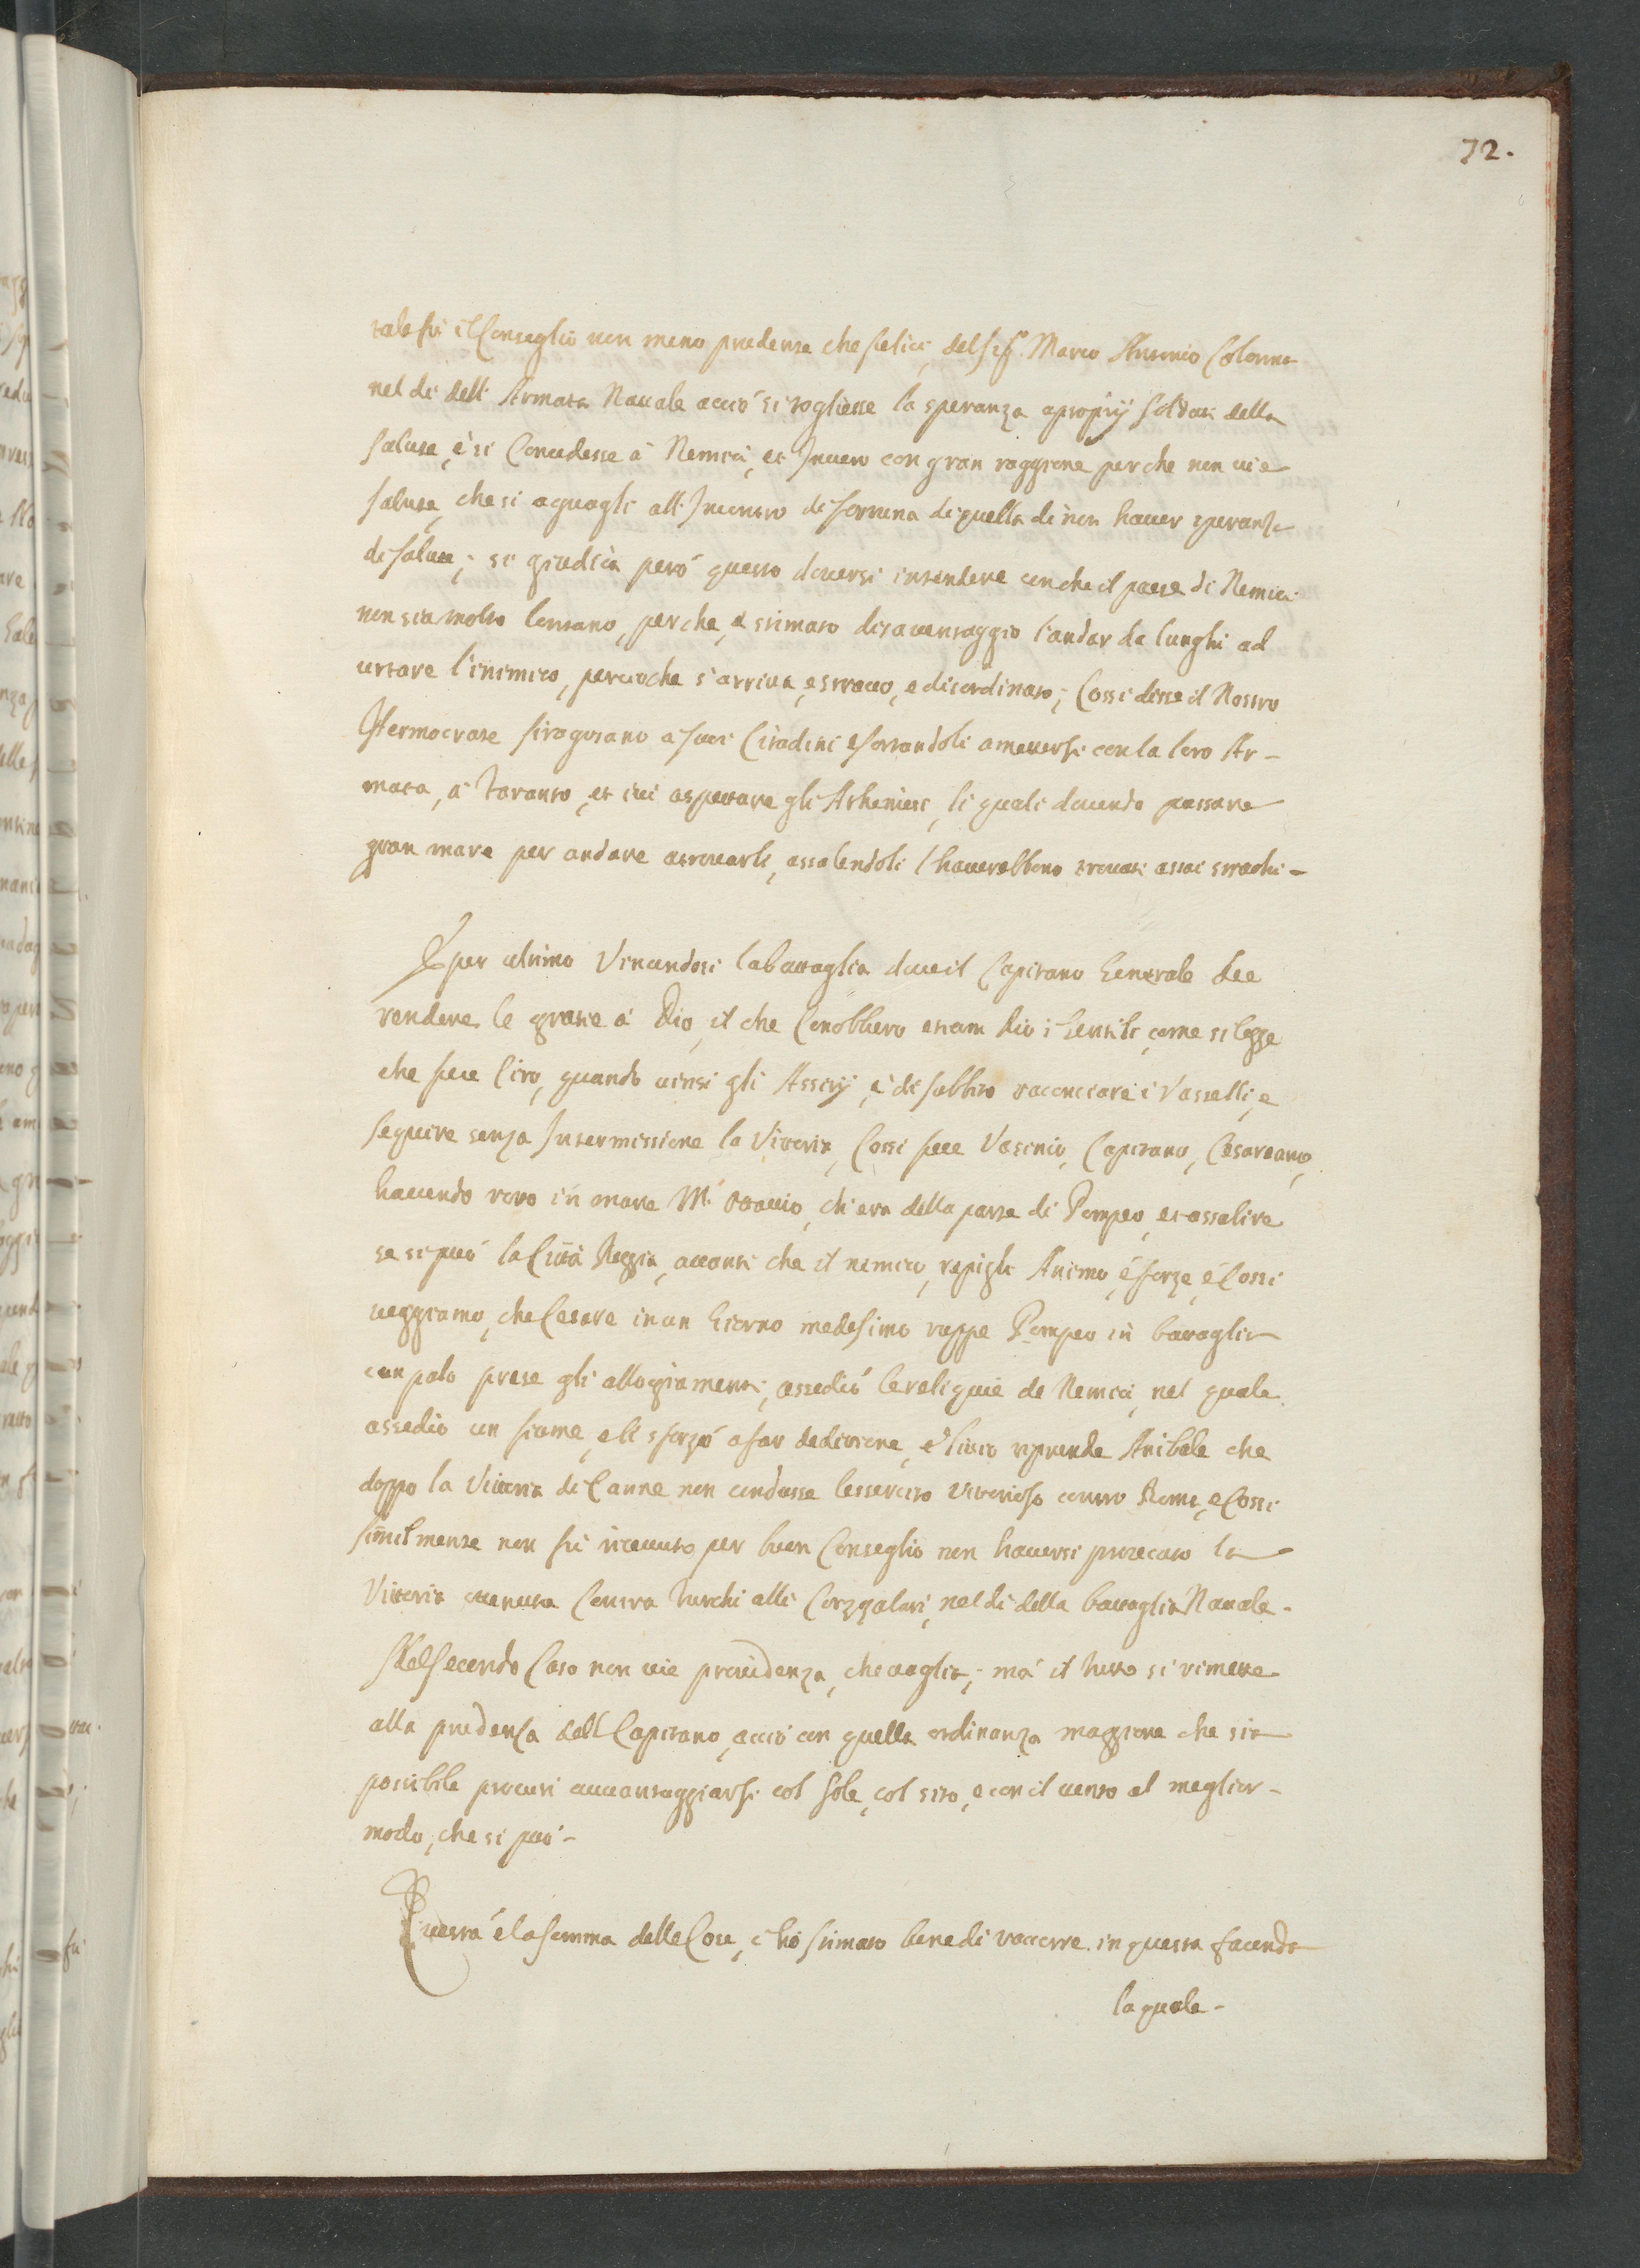 72.
tale fù il Conseglio non meno prudente che felice, del Sig.r Marco Antonio Colonna
nel dì dell'Armata Nauale acciò si togliesse la speranza a proprij soldati della
salute, è si Concedesse à Nemici, et Inuero con gran raggione perche non ui è
salute, che si aguagli all'Incontro di fortuna di quella di non hauer speranza
di salute; si giudica però questo douersi intendere con che il paese di Nemici
non sia molto lontano, perche, è stimato disauentaggio l'andar da lunghi ad
urtare l'inimico, percioche s'arriua, e stracco, e disordinato; Cossi disse il Nostro
Hermocrate siragusano a suoi Citadini esortandoli a mouersi con la loro Ar-
mata, à Taranto, et iui aspettare gli Atheniesi, li quali douendo passare
gran mare per andare a trouarli, assalendoli l'hauerebbono trouati assai strachi-
E per ultimo Vincendosi la battaglia doue il Capitano Generale dee
rendere le gratie à Dio, il che Conobbero etiam dio i Gentili, come si legge
che fece Ciro, quando uinsi gli Assirij, è di subbito racconciare i Vasselli, e
seguire senza Intermissione la Vittoria, Cossi fece Vatinio, Capitano, Cesareano,
hauendo roto in mare M. Ottauio, ch'era della parte di Pompeo, et assalire
se si può la Città Reggia, auanti che il nemico, repigli Animo, è forze, è Cossi
ueggiamo, che Cesare in un Giorno medesimo ruppe Pompeo in bataglia
prese gli allogiamenti, assediò le reliquie de Nemici, nel quale
assedio un fiume, e li sforzò a far deditione, è Liuio riprende Anibale che
doppo la Vittoria di Canne non condusse l'essercito Vitorioso contro Roma, e Cossi
similmente non fù riceuuto per buon Conseglio non hauersi procurato la
Vittoria ottenuta Contra Turchi alli Corzzolari, nel dì della battaglia Nauale.
Nel secondo Caso non uie prouidenza, che uaglia; mà il tutto si rimette
alla prudenza dell Capitano, acciò con quella ordinanza maggiore che sia
possibile procuri auuantaggiarsi col sole, col sito, e con il uento al meglior-
modo, che si può-
Questa è la somma delle Cose, c'hò stimato bene di raccorre in questa facenda
la quale-